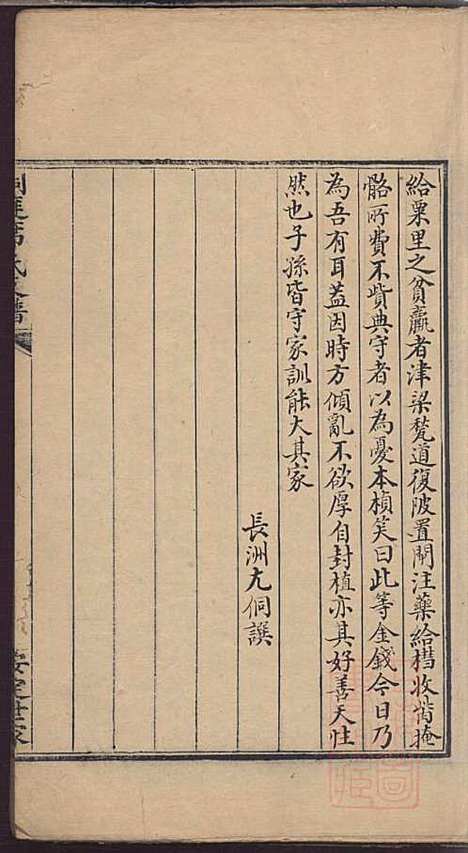 給粟里之貧羸者津梁甃道復陂置閘注藥給槥收胔掩
骼所費不貲典守者以為憂本楨笑曰此等金錢今日乃
為吾有耳蓋因時方傾亂不欲厚自封植亦其好善天性
然也子孫皆守家訓能大其家
長洲尤侗譔
席氏
安定世家